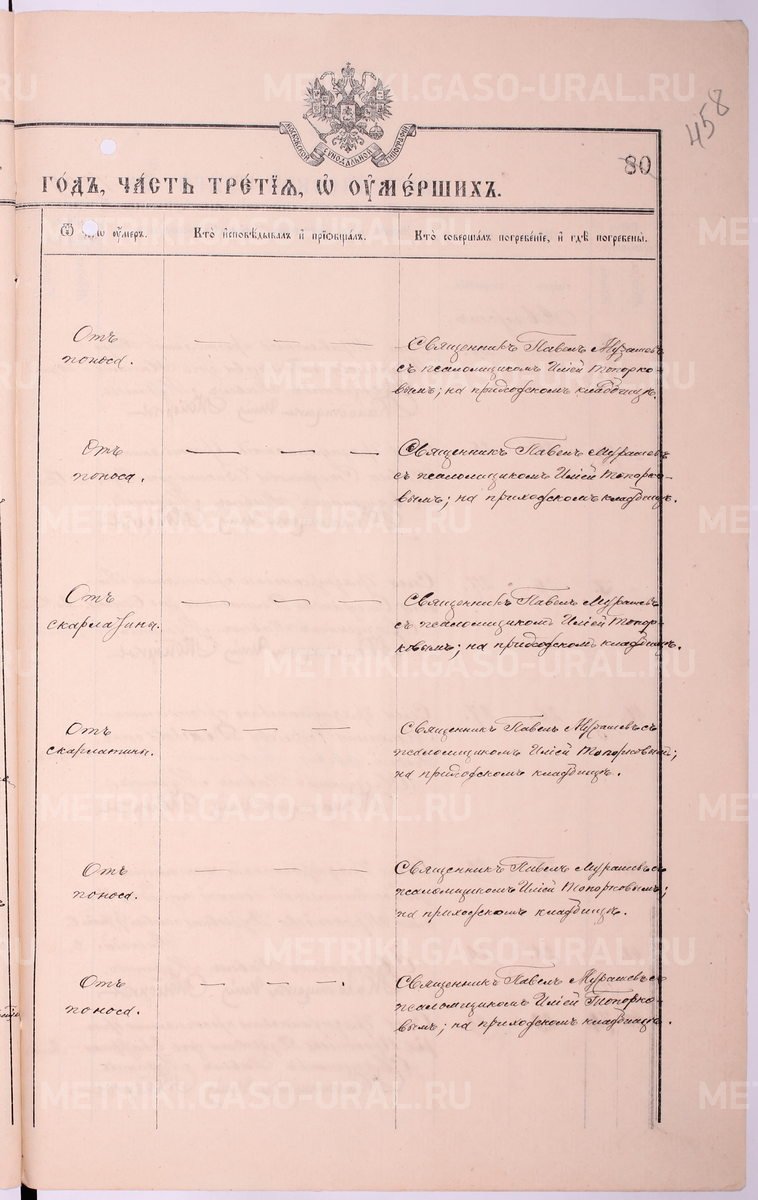 METRIKI.GASO-URAL.RU
458
МОСКОВСКОЙ СѴНОДАЛЬНОЙ ТѴПОГРАФІИ
80
ГО́ДЪ, ЧА́СТЬ ТРЕ́ТІѦ, Ѡ ОУ҆МЕ́РШИХЪ.
Ѿ ᲂу҆́меръ.
Кто̀ и҆сповѣ́дывалъ и҆ пріѻбща́лъ.
Кто̀ соверша́лъ погребе́нїе, и҆ гдѣ̀ погребены̀.
Отъ
поноса.
— — —
Священникъ Павелъ Мурашевъ
съ псаломщикомъ Иліей Топорко-
вымъ; на приходскомъ кладбищѣ.
Отъ
поноса.
— — —
Священникъ Павелъ Мурашевъ
съ псаломщикомъ Иліей Топорко-
вымъ; на приходскомъ кладбищѣ.
Отъ
скарлатины.
— — —
Священникъ Павелъ Мурашевъ
съ псаломщикомъ Иліей Топор-
ковымъ; на приходскомъ кладбищѣ.
Отъ
скарлатины.
— — —
Священникъ Павелъ Мурашевъ съ
псаломщикомъ Иліей Топорковымъ;
на приходскомъ кладбищѣ.
Отъ
поноса.
— — —
Священникъ Павелъ Мурашевъ съ
псаломщикомъ Иліей Топорковымъ;
на приходскомъ кладбищѣ.
Отъ
поноса.
— — —
Священникъ Павелъ Мурашевъ съ
псаломщикомъ Иліей Топорко-
вымъ; на приходскомъ кладбищѣ.